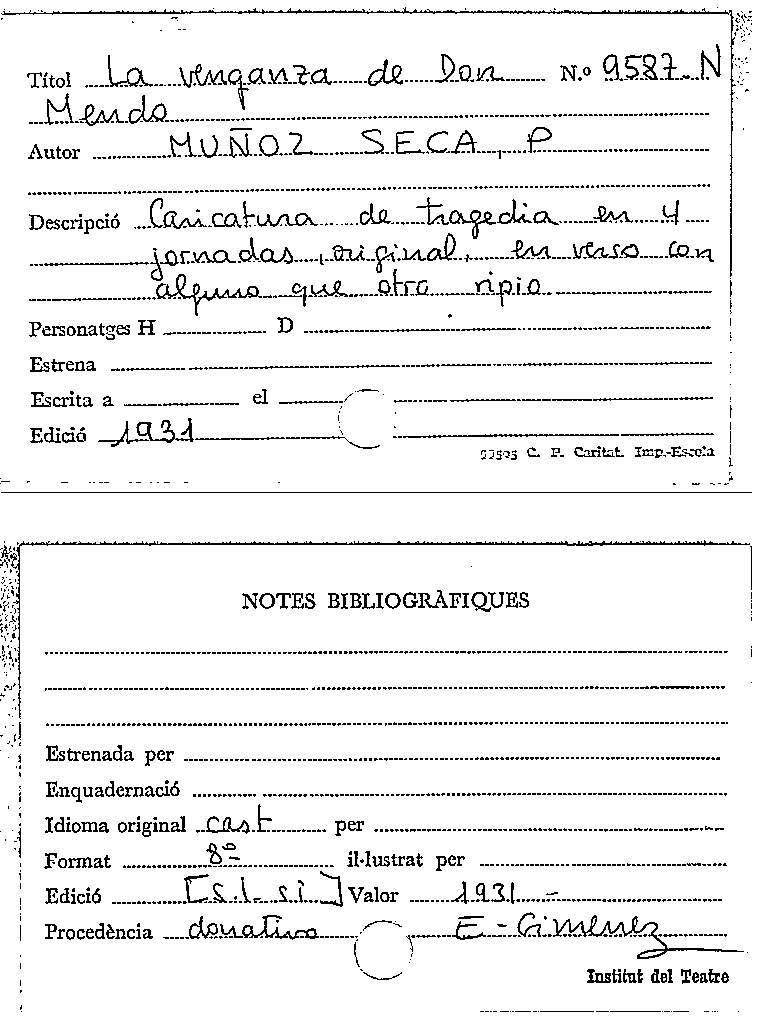 Títol La venganza de Don N.º 9587-N
Mendo
Autor MUÑOZ SECA, P
Descripció Caricatura de tragedia en 4
jornadas, original, en verso con
alguno que otro ripio
Personatges H D
Estrena
Escrita a el
Edició 1931
C. P. Caritat. Imp.-Escola
NOTES BIBLIOGRÀFIQUES
Estrenada per
Enquadernació
Idioma original cast per
Format 8º il·lustrat per
Edició [s.l. si] Valor 1931 -
Procedència donativo E-Gimenez
Institut del Teatre